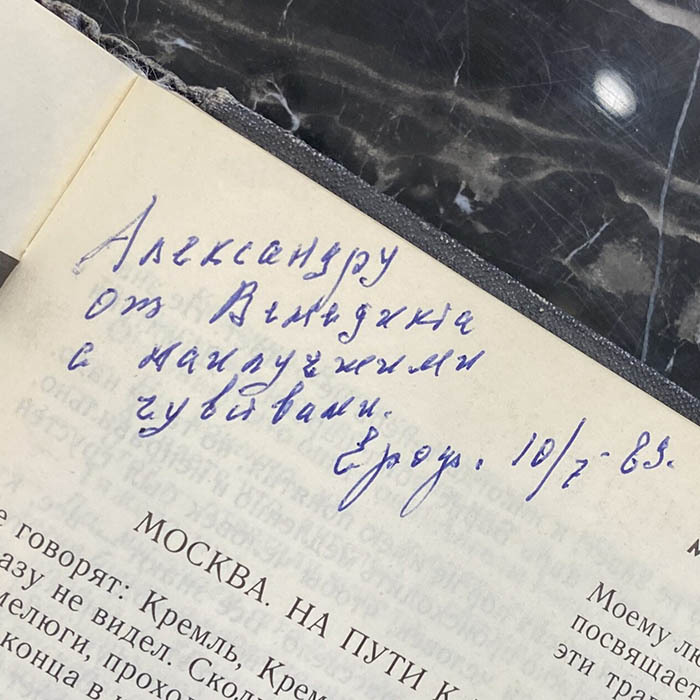 Александру
от Венедикта
с наилучшими
чувствами.
Ероф. 10/7-89.
МОСКВА. НА ПУТИ К
говорят: Кремль, Крем
азу не видел. Скол
мелюги, прохо
конца в
Моему лю
посвящает
эти тра